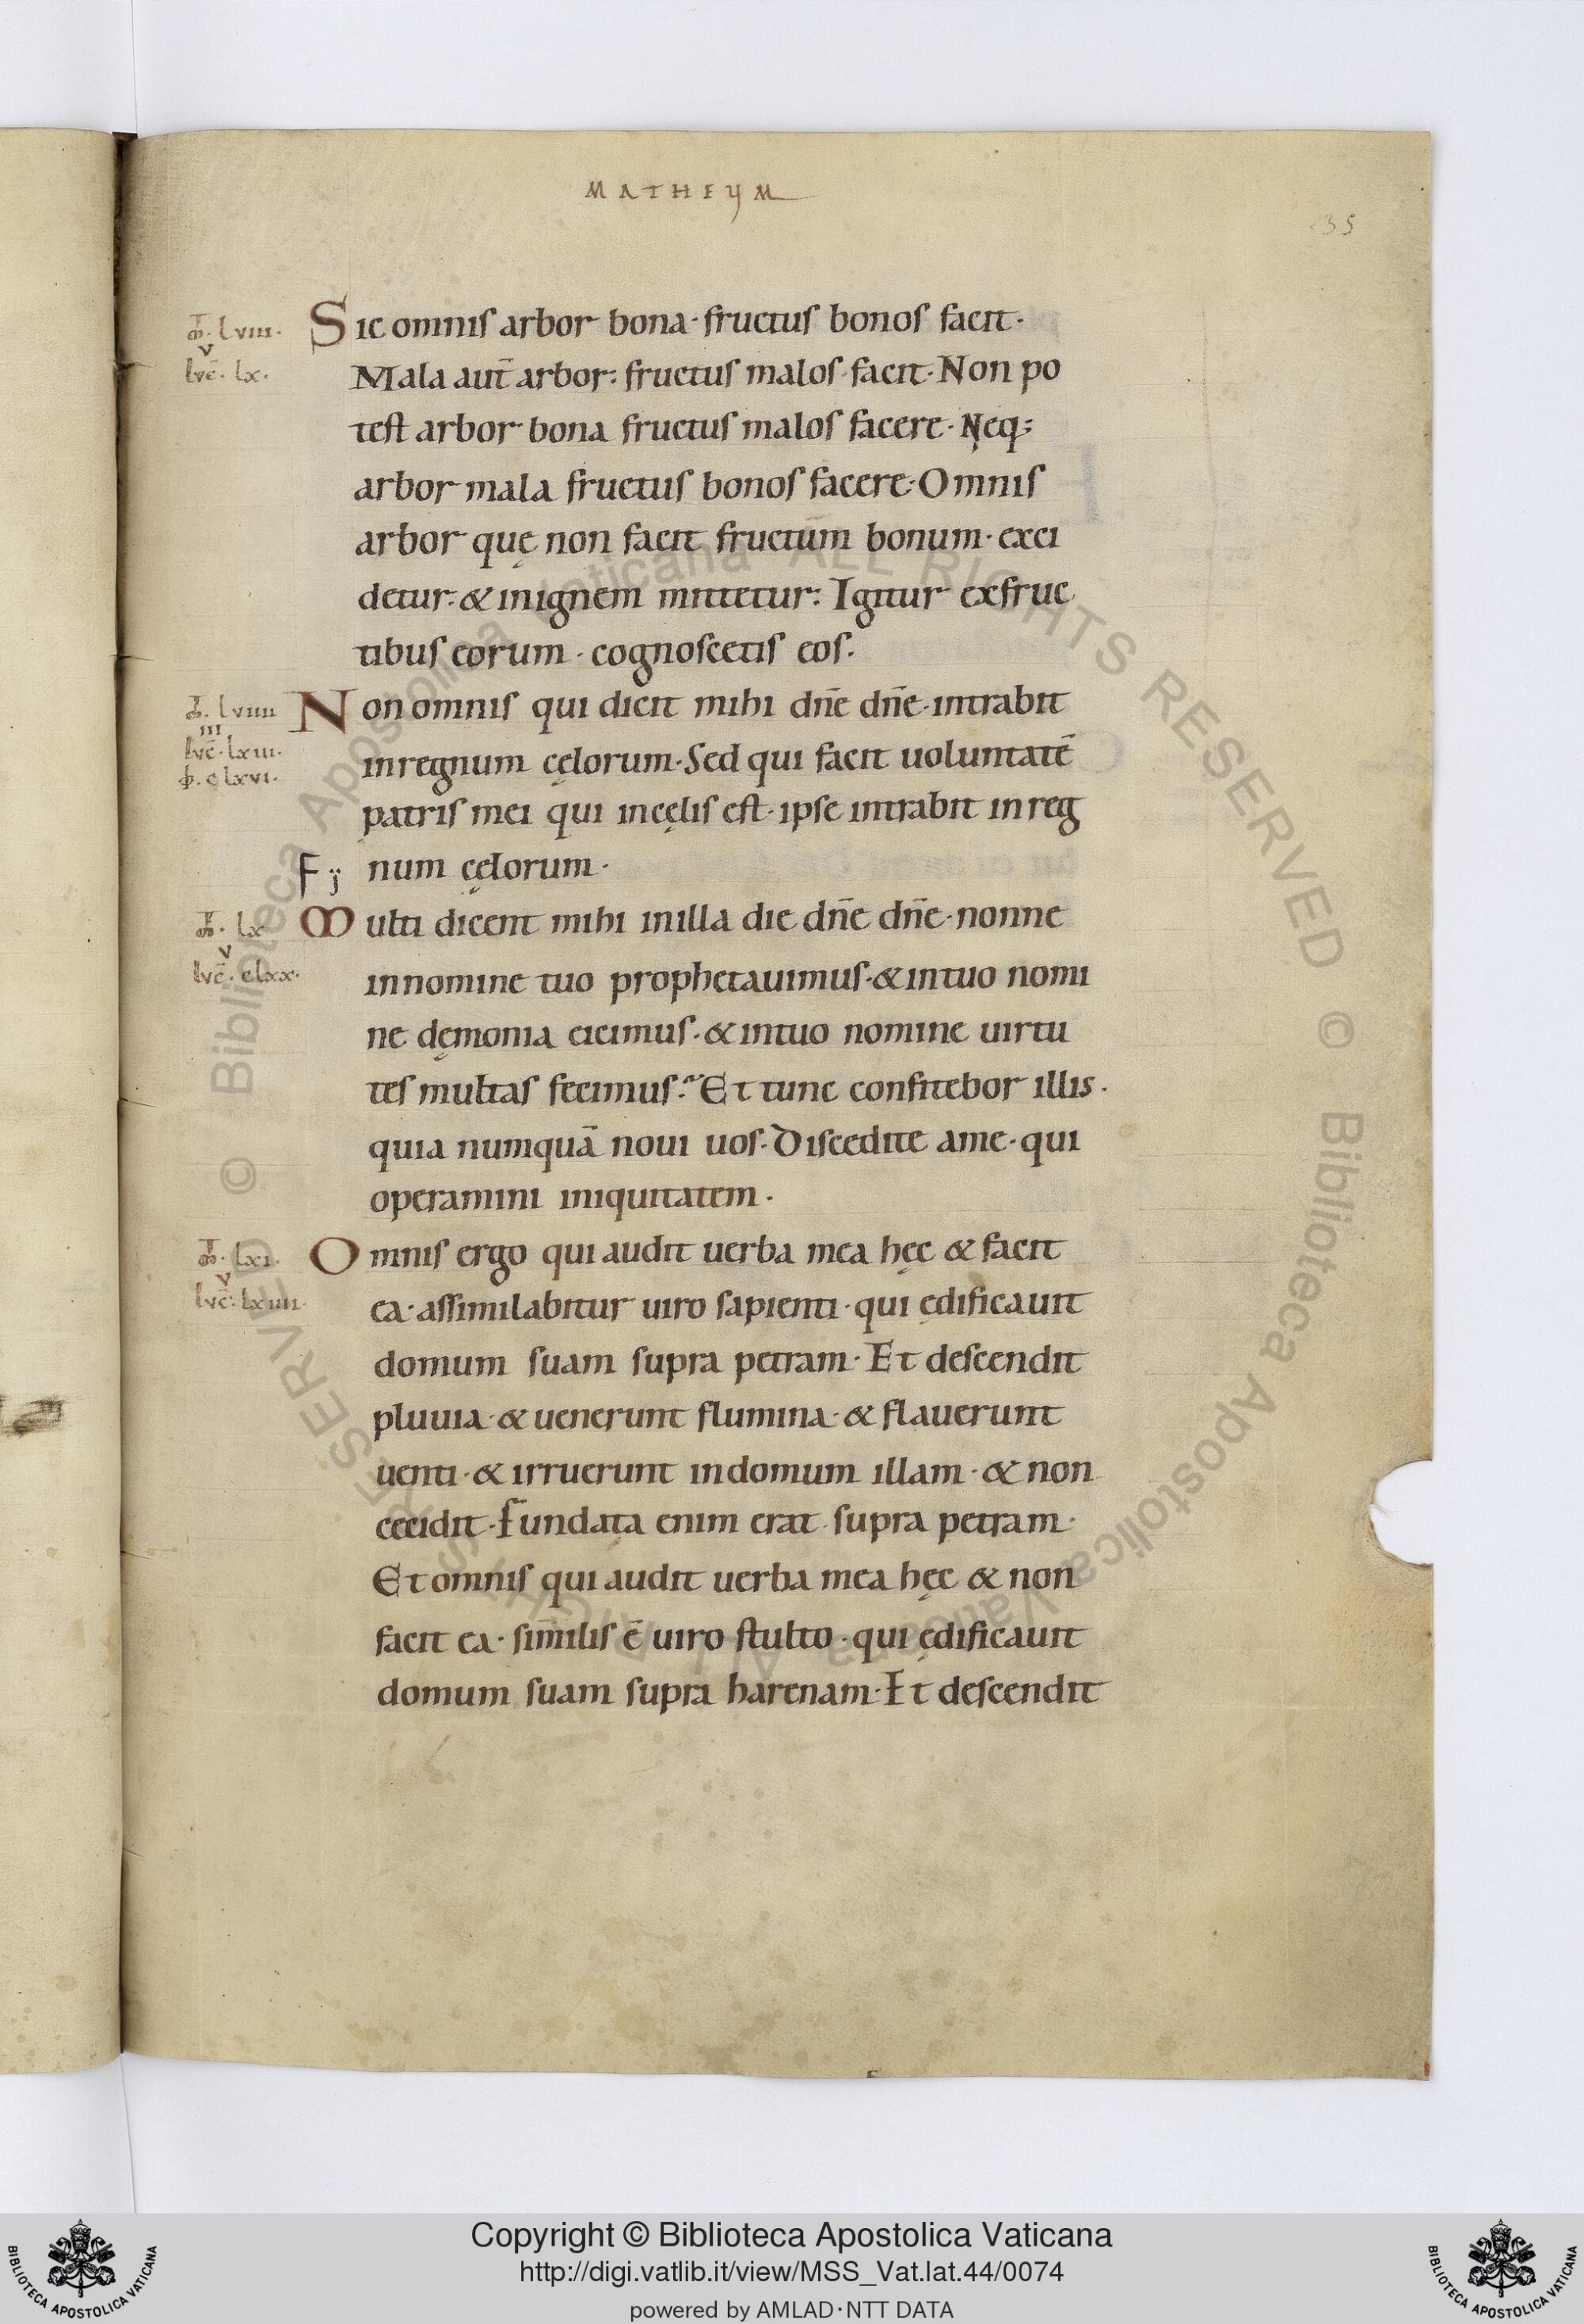 MATHEUM
35
Sic omnis arbor bona· fructus bonos facit·
Mala aut̄ arbor: fructus malos facit· Non po
test arbor bona fructus malos facere· Neq;
arbor mala fructus bonos facere· Omnis
arbor quę non facit fructum bonum· exci
detur: & inignem mittetur: Igitur exfruc
tibus eorum· cognoscetis eos·
Non omnis qui dicit mihi dn̄e dn̄e· intrabit
inregnum cęlorum· Sed qui facit uoluntatē
patris mei qui incęlis est· ipse intrabit inreg
num cęlorum·
Multi dicent mihi inilla die dn̄e dn̄e· nonne
innomine tuo prophetauimus· & intuo nomi
ne dęmonia eicimus· & intuo nomine uirtu
tes multas fecimus? Et tunc confitebor illis·
quia numquā noui uos· Discedite ame· qui
operamini iniquitatem·
Omnis ergo qui audit uerba mea hęc & facit
ea· assimilabitur uiro sapienti· qui ędificauit
domum suam supra petram· Et descendit
pluuia· & uenerunt flumina· & flauerunt
uenti· & irruerunt indomum illam· & non
cecidit· Fundata enim erat supra petram·
Et omnis qui audit uerba mea hęc & non
facit ea· similis ē uiro stulto· qui ędificauit
domum suam supra harenam· Et descendit
lviii·
v
lvc̄· lx·
lviiii
iii
lvc̄· lxiii·
clxvi·
F ij
lx
v
lvc̄· clxx·
lxi·
v
lvc̄· lxiiii·
© Biblioteca Apostolica Vaticana ALL RIGHTS RESERVED
© Biblioteca Apostolica Vaticana ALL RIGHTS RESERVED
Copyright © Biblioteca Apostolica Vaticana
http://digi.vatlib.it/view/MSS_Vat.lat.44/0074
powered by AMLAD·NTT DATA
BIBLIOTECA APOSTOLICA VATICANA
BIBLIOTECA APOSTOLICA VATICANA